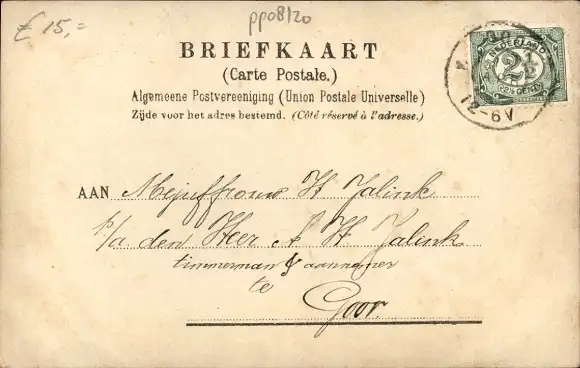 € 15,=
pp08120
BRIEFKAART
(Carte Postale.)
Algemeene Postvereeniging (Union Postale Universelle)
Zijde voor het adres bestemd. (Côté réservé à l'adresse.)
NEDERLAND
2½
(2½ CENT)
12-6V
AAN Mejuffrouw H Jalink
p/a den Heer A H Jalink
timmerman & aannemer
te
Goor.